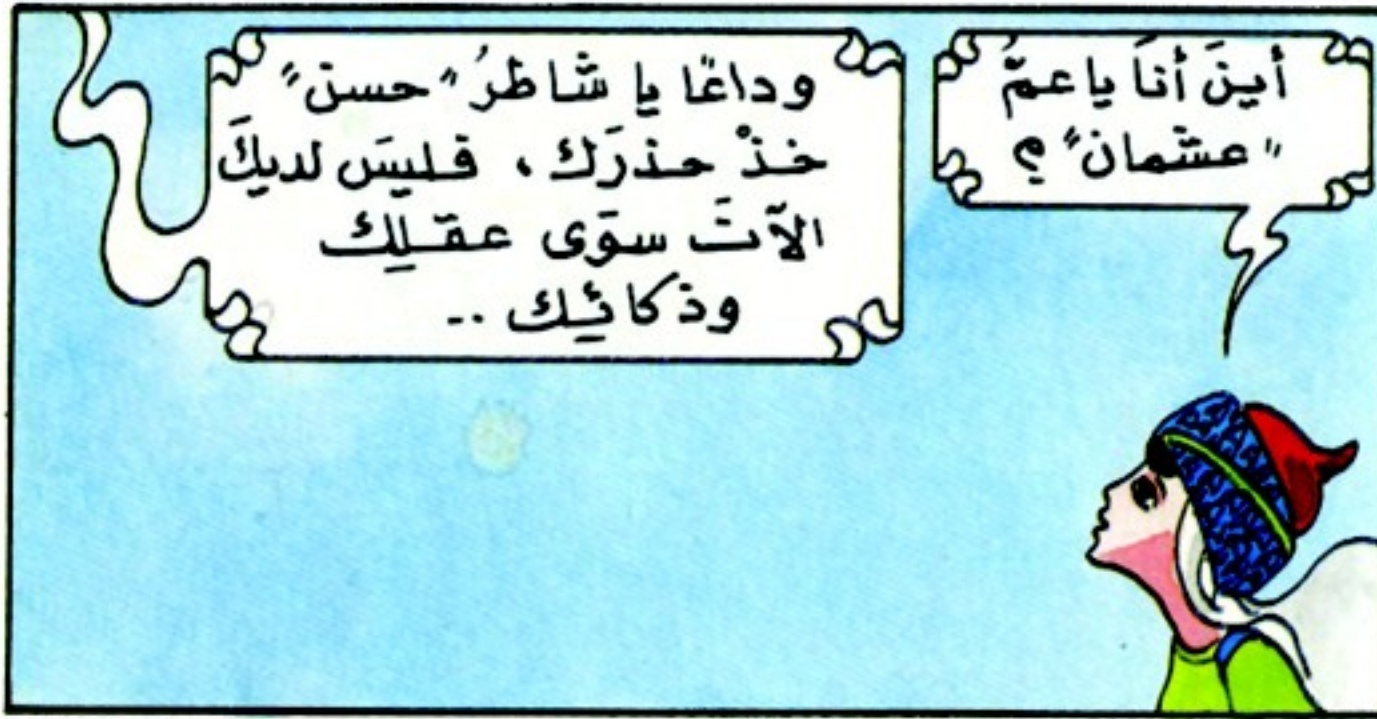 أينَ أنَا يا عمّ
"عشمان" ؟
وداعًا يا شاطرُ "حسن"
خذْ حذرَك ، فليسَ لديكَ
الآنَ سوَى عقلِك
وذكائِك ..